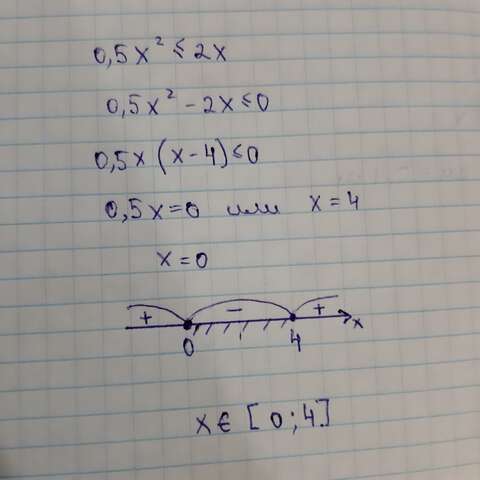 0,5x² ≤ 2x
0,5x² - 2x ≤ 0
0,5x (x - 4) ≤ 0
0,5x = 0 или x = 4
x = 0
+ - +
0 4 x
x ∈ [0; 4]